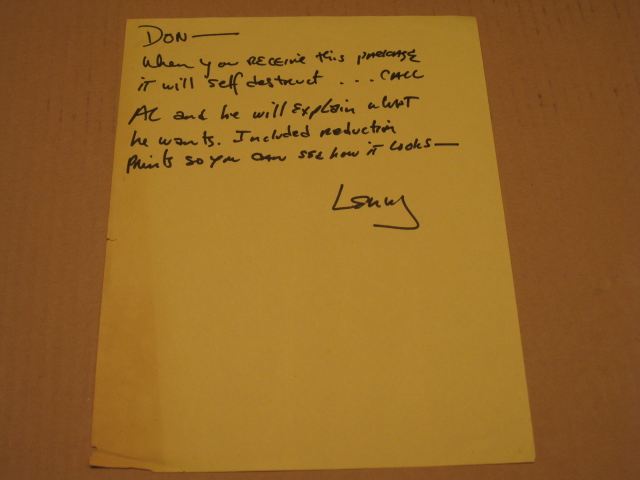 DON —
When you RECEIVE this package
it will self destruct . . . CALL
AL and he will Explain what
he wants. Included reduction
prints so you can see how it looks —
Lenny